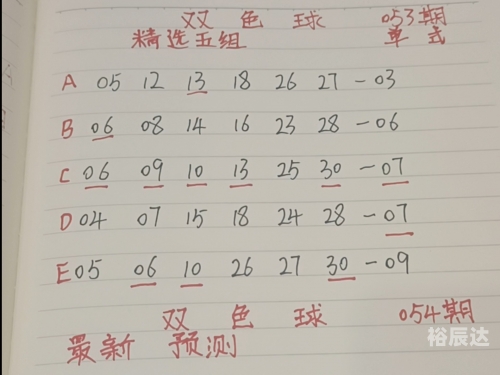 双色球 053期
精选五组 单式
A 05 12 13 18 26 27 - 03
B 06 08 14 16 23 28 - 06
C 06 09 10 13 25 30 - 07
D 04 07 15 18 24 28 - 07
E 05 06 10 26 27 30 - 09
双色球 054期
最新预测
裕辰达